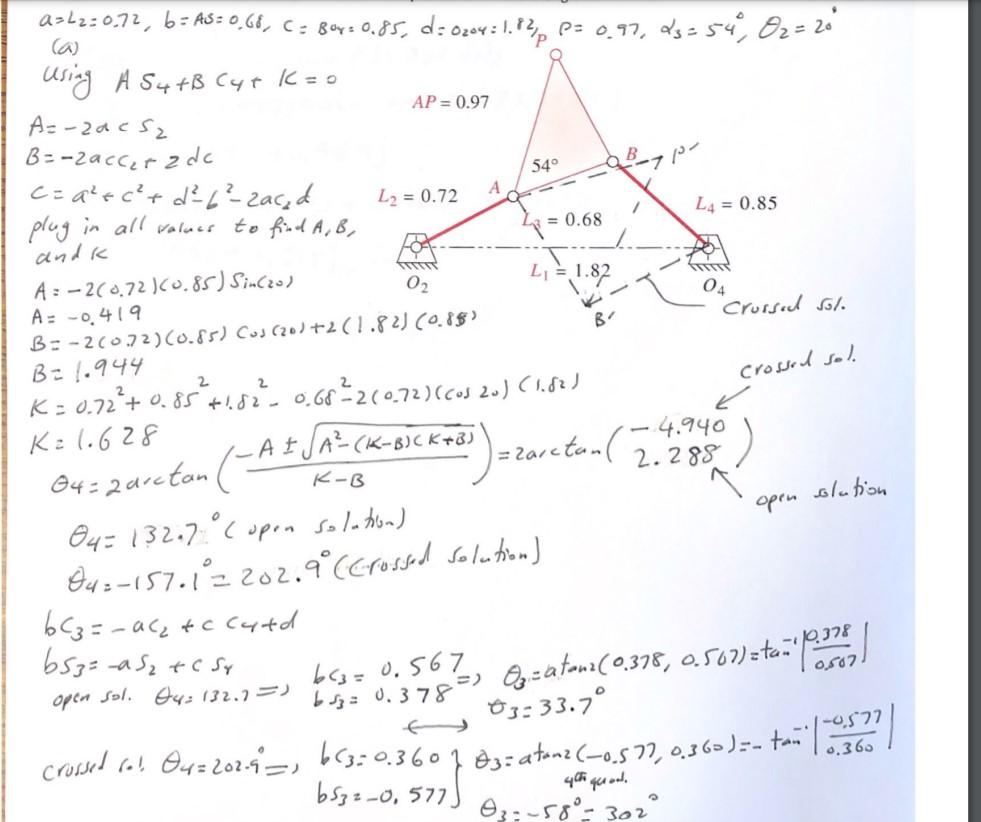 a=L2=0.72, b=AS=0.68, C=BO4=0.85, d=O2O4=1.82, P=0.97, α3=54°, θ2=20°
(a)
Using A S4+B C4+ K=0
A=-2acs2
B=-2acc2+2dc
C=a²+c²+d²-b²-2ac2d
plug in all values to find A, B,
and K
A=-2(0.72)(0.85)Sin(20)
A=-0.419
B=-2(0.72)(0.85) Cos(20)+2(1.82)(0.85)
B=1.944
K=0.72²+0.85²+1.82²-0.68²-2(0.72)(cos 20)(1.82)
K=1.628
P
AP = 0.97
54°
A
B
P'
L2 = 0.72
L3 = 0.68
L4 = 0.85
L1 = 1.82
O2
O4
B'
Crossed sol.
θ4=2arctan(-A±√A²-(K-B)(K+B)/K-B)=2arctan(-4.940 2.288)
crossed sol.
open slution
θ4=132.7° (open solution)
θ4=-157.1°=202.9° (Crossed solution)
bC3=-aC2+c C4+d
bS3=-aS2+c S4
open sol. θ4=132.7=>
bC3=0.567
bS3=0.378
=> θ3=atan2(0.378, 0.567)=tan⁻¹|0.378/0.567|
θ3=33.7°
crossed sol. θ4=202.9°=>
bC3=0.360
bS3=-0.577
} θ3=atan2(-0.577, 0.360)=-tan⁻¹|-0.577/0.360|
4th quad.
θ3=-58°=302°